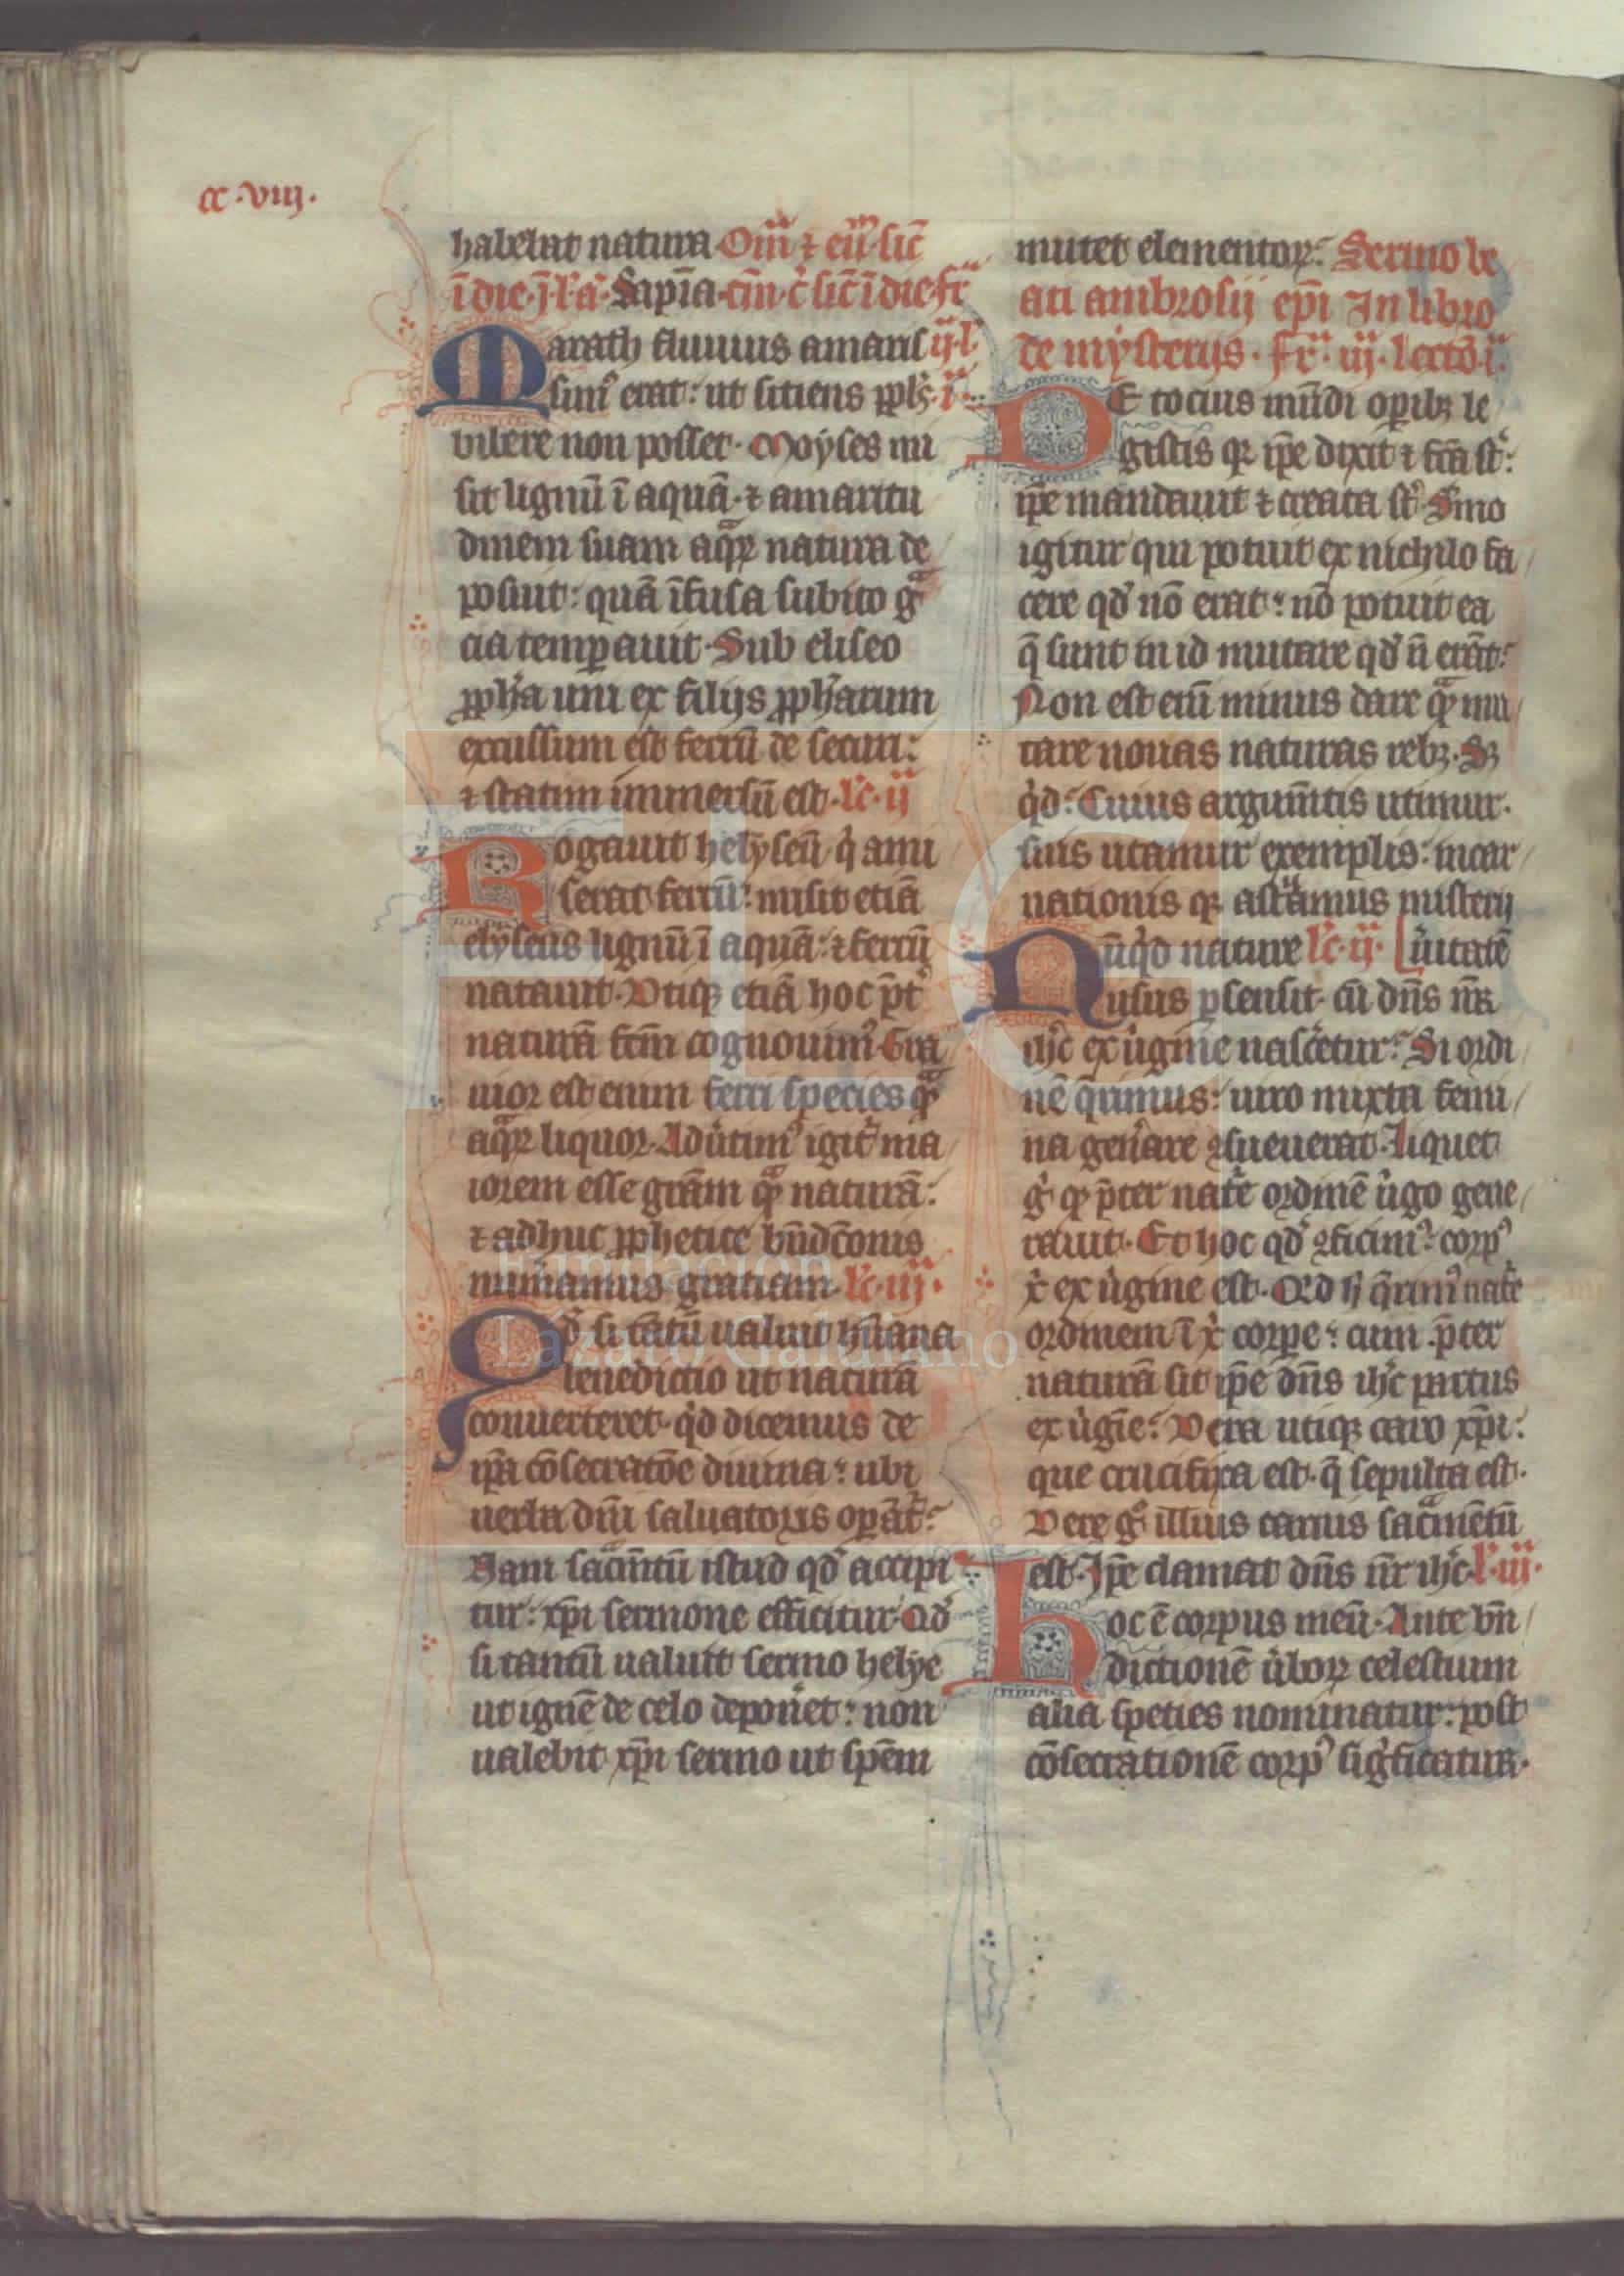 cc.viij.
habebat natura. Om̅ ⁊ eu̅. sic̅
i̅ die. j. la̅. Sapia̅. cm̅. c̉ sic̅ i̅ die. fr̅
Marath fluuius amaris ij. l
simꝰ erat: ut sitiens ppl̅s. i.
bibere non posset. Moyses mi
sit lignu̅ i̅ aqua̅. ⁊ amaritu
dinem suam aqꝝ natura de
posuit: qua̅ i̅fusa subito g̅
cia temꝑauit. Sub eliseo
ꝓph̅a uni ex filijs ꝓph̅arum
excussum est ferru̅ de securi:
⁊ statim immersu̅ est. lc̅. ij
Rogauit helyseu̅ q̉ ami
serat ferru̅: misit etia̅
elyseus lignu̅ i̅ aqua̅: ⁊ ferru̅
natauit. Utiqꝫ etia̅ hoc p̅t̉
natura̅ fc̅m cognouimꝰ. Gra
uior est enim ferri species qᷓ
aqꝝ liquor. Aduertimꝰ igit̉ ma
iorem esse gra̅m qᷓ natura̅:
⁊ adhuc ꝓphetice bn̅dc̅onis
numeramus gratiam. lc̅. iij.
Qd̉ si ta̅tu̅ ualuit hu̅ana
benedictio ut natura̅
conuerteret. q̉d dicemus de
ip̅a co̅secrato̅e diuina: ubi
uerba dn̅i saluatoris oꝑa̅t̉:
Nam sac̅mtu̅ istud qd̉ accipi
tur: xp̅i sermone efficitur. Qd̉
si tantu̅ ualuit sermo helye
ut igne̅ de celo deponeret: non
ualebit xp̅i sermo ut spe̅m
mutet elementoꝝ: Sermo be
ati ambrosij ep̅i In libro
de mysterijs. fr̅. iij. lecto̅ i.
DE tocius mu̅di oꝑibꝫ le
gistis qꝛ ip̅e dixit ⁊ fc̅a st̅:
ip̅e mandauit ⁊ creata st̅. S̅mo
igitur qui potuit ex nichilo fa
cere qd̉ no̅ erat: no̅ potuit ea
q̅ sunt in id mutare qd̉ n̅ era̅t:
Non est eni̅ minus dare qᷓ mu
tare nouas naturas rebꝫ. Sꝫ
q̉d: Cuius argum̅tis utimur.
suis utamur exemplis: incar
nationis qꝫ astruamus misterij
Nu̅q̉d nature lc̅. ij. [u̅itate̅
usus p̅sensit. cu̅ dn̅s nr̅
ih̅c ex u̅gine nasc̅etur: Si ordi
ne̅ q̅rimus: uiro mixta femi
na gen̅are ꝯsueuerat. Liquet
g̉ qꝫ p̅ter nat̅e ordine̅ u̅go gene
rauit. Et hoc qd̉ ꝯficimꝰ: corpꝰ
x̅ ex u̅gine est. Qd̉ h̉ q̅rimꝰ nat̅e
ordinem i̅ x̅ corꝑe: cum p̅ter
natura̅ sit ip̅e dn̅s ih̅c partus
ex u̅gi̅e: Vera utiqꝫ caro xp̅i:
que crucifixa est. q̅ sepulta est.
Vere g̉ illius carnis sac̅me̅tu̅
est. Ip̅e clamat dn̅s nr̅ ih̅c. l. iij.
Hoc e̅ corpus meu̅. Ante bn̅
dictione̅ u̅boꝝ celestium
alia species nominatur: post
co̅secratione̅ corpꝰ sig̉ficatur.
Fundación
Lázaro Galdiano